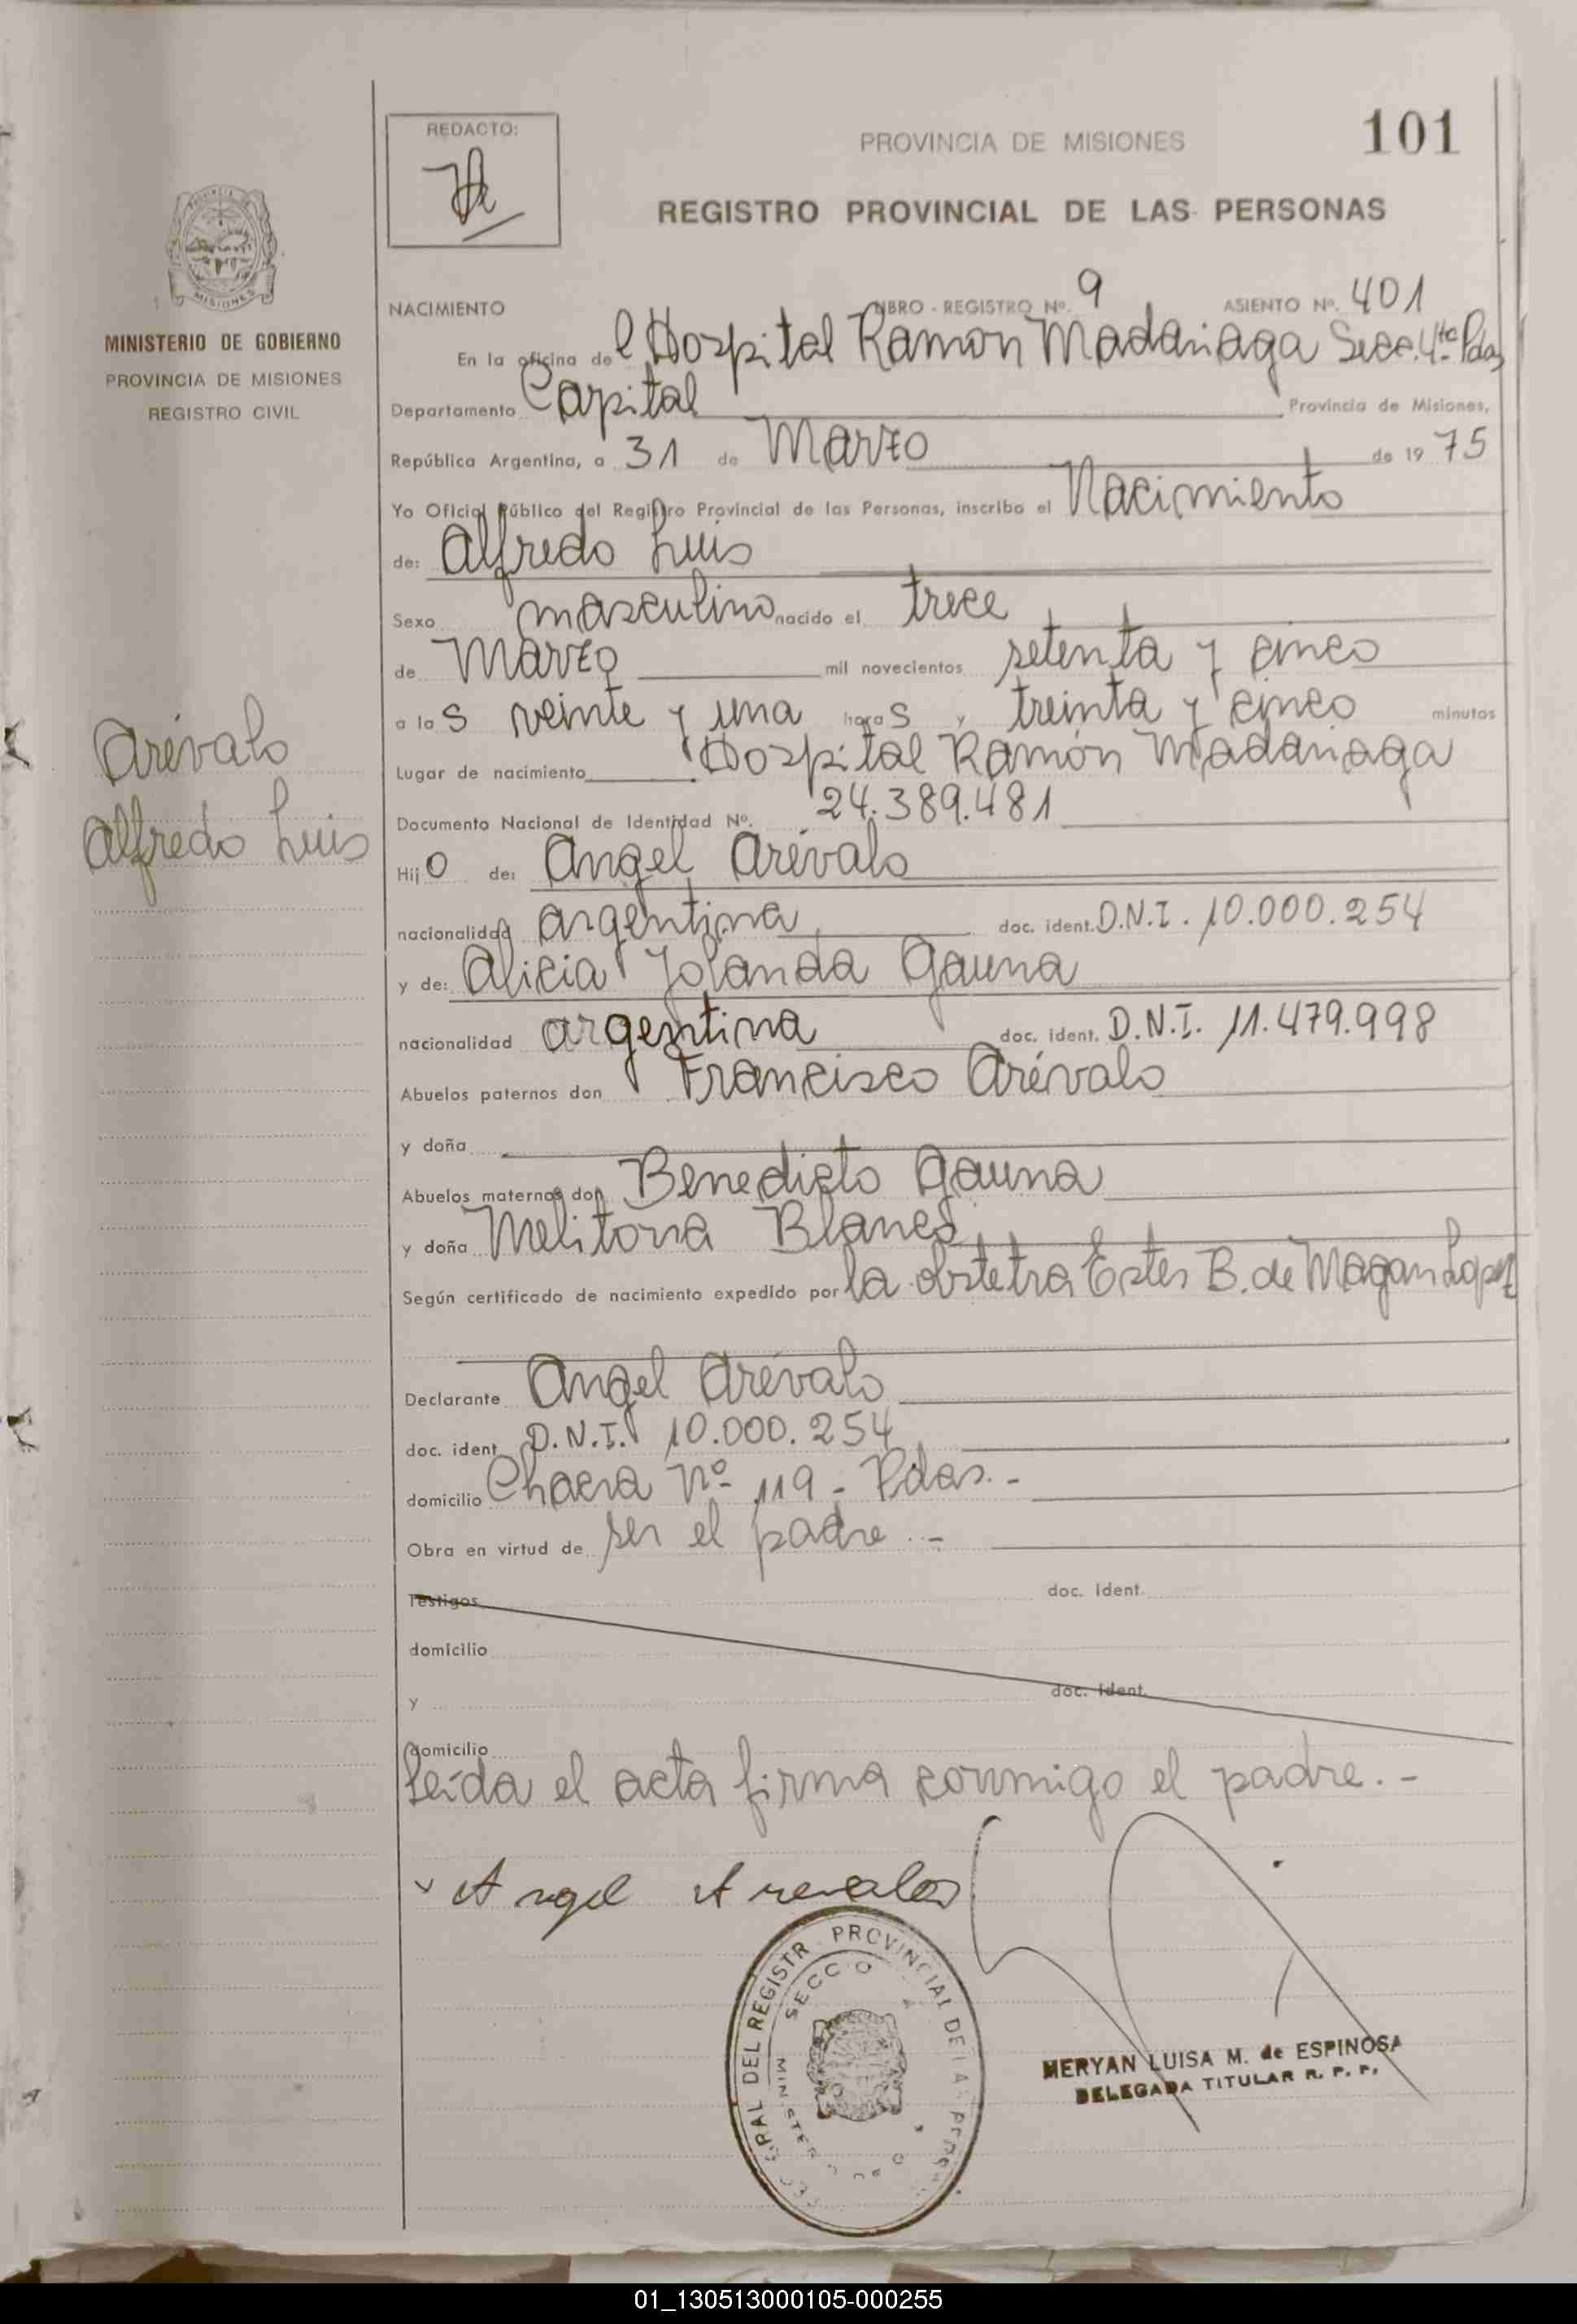 101
REDACTO:
PROVINCIA DE MISIONES
REGISTRO PROVINCIAL DE LAS PERSONAS
MISIONES
MINISTERIO DE GOBIERNO
PROVINCIA DE MISIONES
REGISTRO CIVIL
Arévalo
Alfredo Luis
NACIMIENTO LIBRO - REGISTRO Nº. 9 ASIENTO Nº. 401
En la oficina del Hospital Ramon Madariaga Secc. 4ta Pdas
Departamento Capital Provincia de Misiones,
República Argentina, a 31 de Marzo de 19 75
Yo Oficial Público del Registro Provincial de las Personas, inscribo el Nacimiento
de: Alfredo Luis
Sexo masculino nacido el trece
de Marzo mil novecientos setenta y cinco
a las veinte y una horas y treinta y cinco minutos
Lugar de nacimiento Hospital Ramón Madariaga
Documento Nacional de Identidad Nº. 24.389.481
Hijo de: Angel Arévalo
nacionalidad argentina doc. ident. D.N.I. 10.000.254
y de: Alicia Yolanda Gauna
nacionalidad argentina doc. ident. D.N.I. 11.479.998
Abuelos paternos don Francisco Arévalo
y doña
Abuelos maternos don Benedicto Gauna
y doña Melitona Blanco
Según certificado de nacimiento expedido por la obstetra Ester B. de Magan Lopez
Declarante Angel Arévalo
doc. ident D.N.I. 10.000.254
domicilio Chacra Nº 119 - Pdas. -
Obra en virtud de ser el padre . -
Testigos doc. ident.
domicilio
y doc. ident.
domicilio
Leída el acta firma conmigo el padre. -
Angel Arevalos
REGISTR PROVINCIAL DE LA
SECCIO
MERYAN LUISA M. de ESPINOSA
DELEGADA TITULAR R. P. P.
01_130513000105-000255